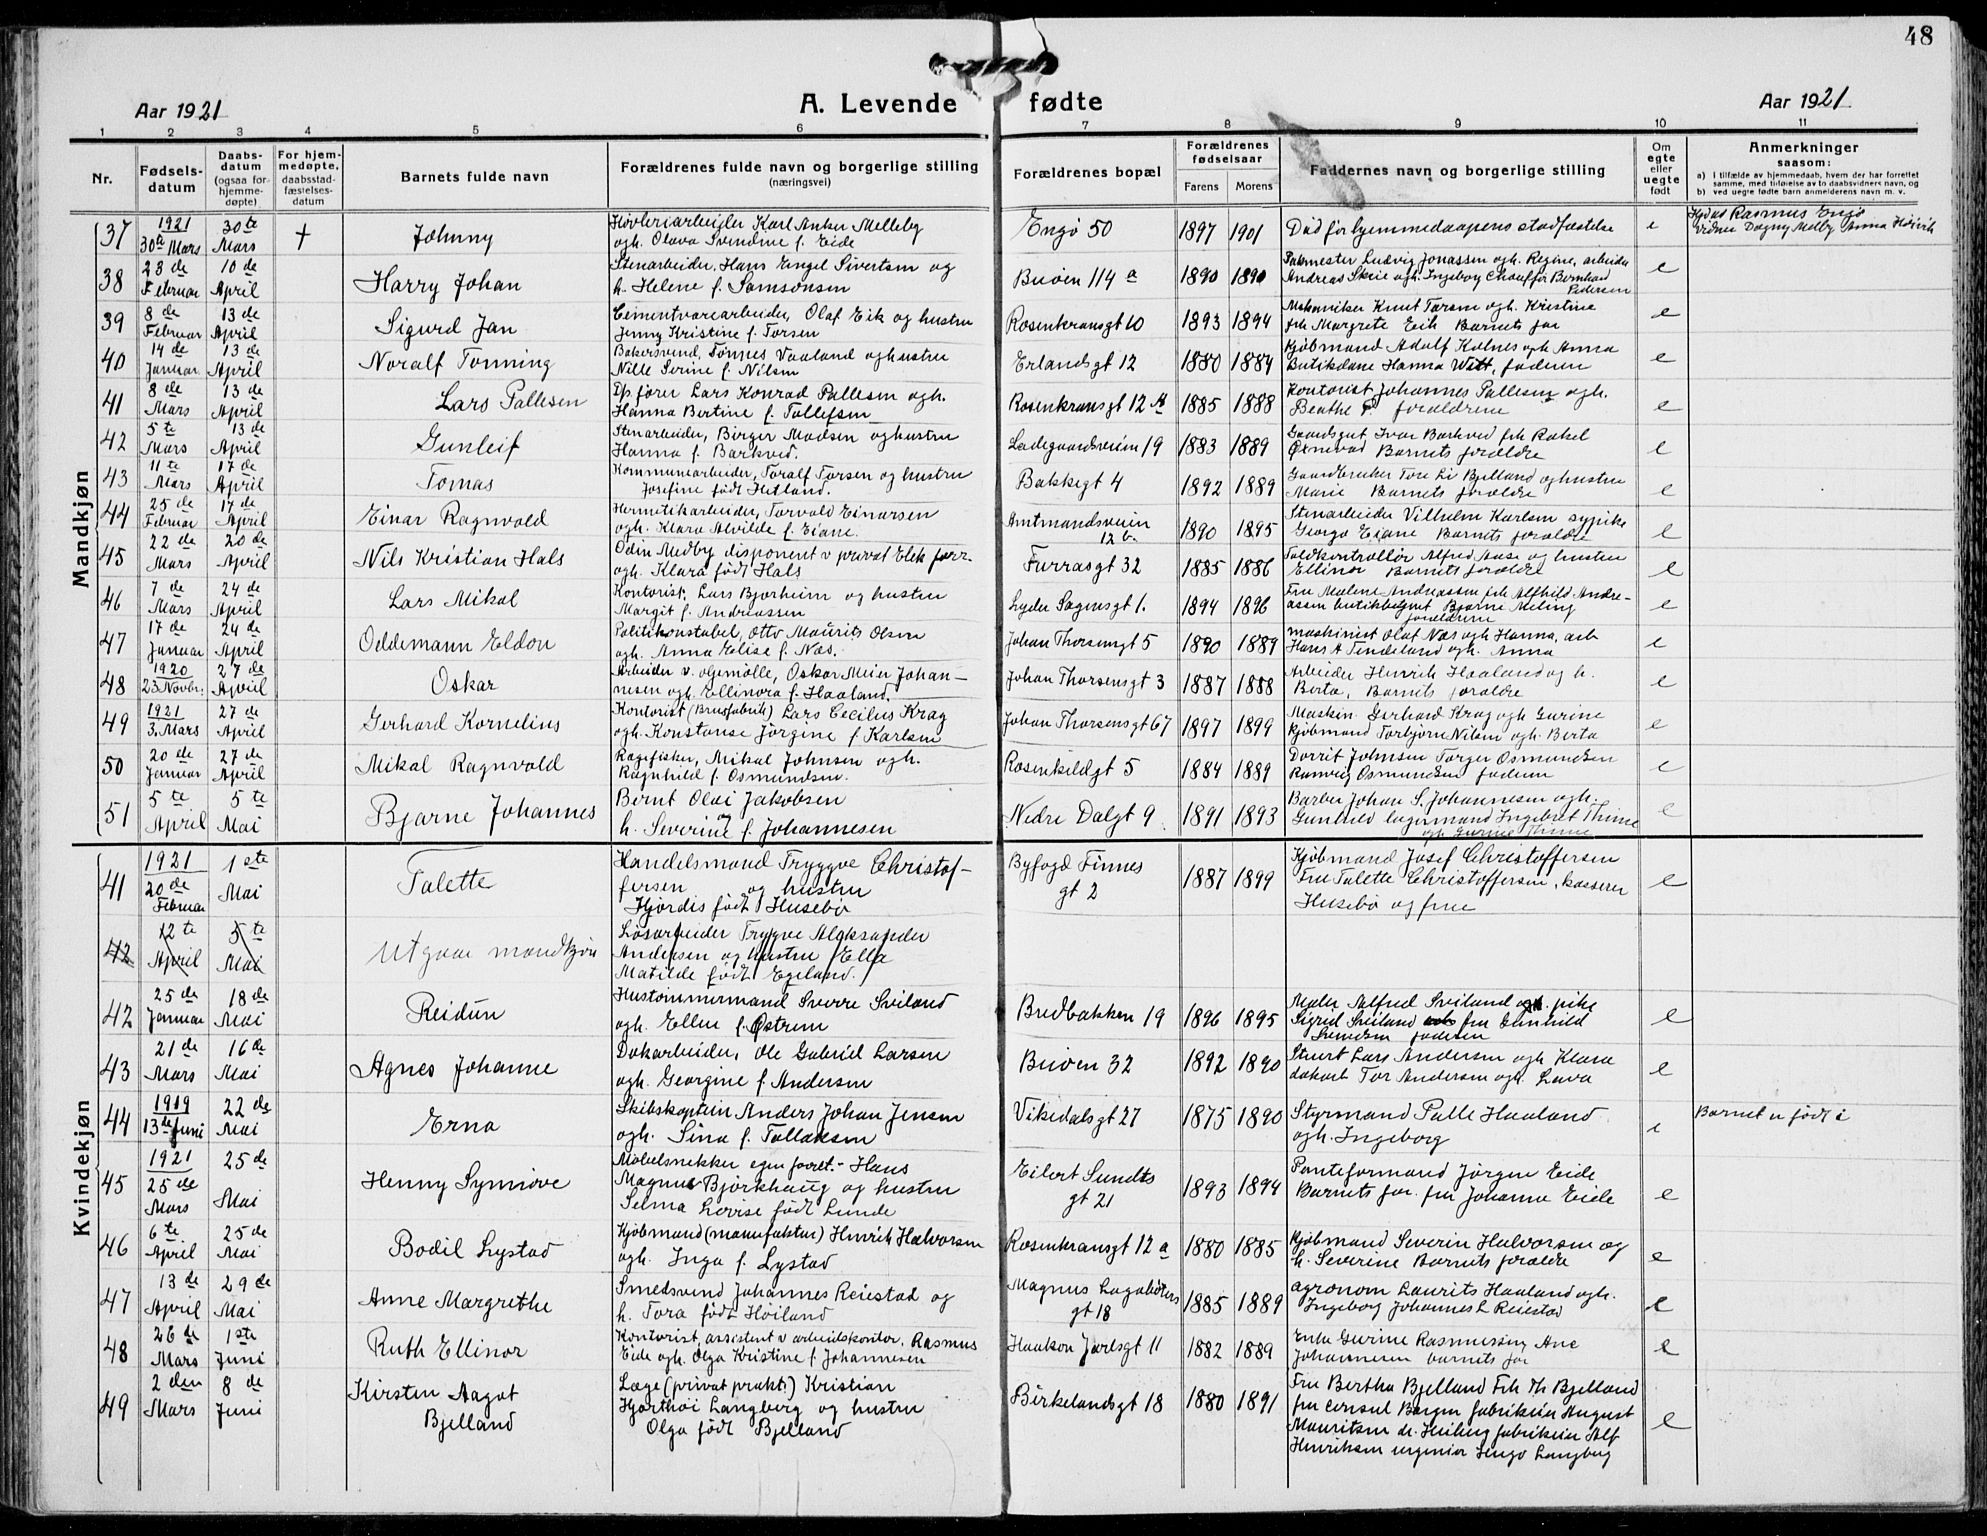 48
Aar 1921
A. Levende fødte
Aar 1921
1 2 3 4 5 6 7 8 9 10 11
Nr.
Fødsels-
datum
Daabs-
datum
(ogsaa for
hjemme-
døpte)
For hjem-
medøpte,
daabsstad-
fæstelses-
datum
Barnets fulde navn
Forældrenes fulde navn og borgerlige stilling
(næringsvei)
Forældrenes bopæl
Forældrenes
fødselsaar
Farens Morens
Faddernes navn og borgerlige stilling
Om
egte
eller
uegte
født
Anmerkninger
saasom:
a) I tilfælde av hjemmedaab, hvem der har forrettet
samme, med tilføielse av to daabsvidners navn, og
b) ved uegte fødte barn anmelderens navn m. v.
Mandkjøn
37
1921
30te Mars
30te
Mars
†
Johnny
Høvleriarbeider Karl Anker Melleby
ogh. Olava Svendine f. Eide
Engø 50
1897 1901
Død før hjemmedaapens stadfæstelse
e
Rasmus Engø
Vidner Dagny Melby Anna
38
23de
Februar
10de
April
Harry Johan
Stenarbeider, Hans Engel Sivertsen og
h. Helene f. Samsonsen
Buøen 114 a
1890 1890
Ludvig Jonassen ogh. Regine, arbeider
Andreas Skeie ogh. Ingeborg Chauffør Bernhard
Pedersen
e
39
8de
Februar
13de
April
Sigurd Jan
Cementvarearbeider, Olaf Eik og hustru
Jenny Kristine f. Torsen
Rosenkransgt 10
1893 1894
Mekaniker Knut Torsen ogh. Kristine
frk Margrete Eik Barnets far
e
40
14de
Januar
13de
April
Noralf Tonning
Bakersvend, Tønnes Vaaland og hustru
Nille Serine f. Nilsen
Erlandsgt 12
1880 1884
Kjøbmand Adolf Kolnes ogh Anna
Butikdame Hanna Witt, faderen
e
41
8de
Mars
13de
April
Lars Pallesen
Dp. fører Lars Konrad Pallesen ogh.
Hanna Bertine f. Tollefsen
Rosenkransgt 12 A
1885 1888
Kontorist Johannes Pallesen ogh.
Beathe P. forældrene
e
42
5te
Mars
13de
April
Gunleif
Stenarbeider, Birger Madsen og hustru
Hanna f. Barkved.
Ladegaardsveien 19
1883 1889
Gaardsgut Ivar Barkved frk Rakel
Ørnevad Barnets forældre
e
43
11te
Mars
17de
April
Tomas
Kommunearbeider, Toralf Torsen og hustru
Josefine født Hetland.
Bakkegt 4
1892 1889
Gaardbruker Tore Li Bjelland og hustru
Marie Barnets forældre
e
44
25de
Februar
17de
April
Einar Ragnvald
Hermetikarbeider, Torvald Einarsen
ogh. Klara Alvilde f. Eiane.
Amtmandsveien
12 b.
1890 1895
Stenarbeider Vilhelm Karlsen sypike
Georga Eiane Barnets forældre
e
45
22de
Mars
20de
April
Nils Kristian Hals
Odin Medby disponent v privat Elek forr.
ogh. Klara født Hals
Furrasgt 32
1885 1886
Toldkontrollør Alfred Aase og hustru
Ellinor Barnets forældre
e
46
7de
Mars
24de
April
Lars Mikal
Kontorist, Lars Bjørheim og hustru
Margit f. Andreassen
Lyder Sagensgt 1.
1894 1896
Fru Malene Andreassen frk Alfhild Andre-
assen butikbetjent Bjarne Meling
forældrene
e
47
17de
Januar
24de
April
Oddemann Eldon
Politikonstabel, Otto Maurits Olsen
ogh. Anna Elise f. Næs.
Johan Thorsensgt 5
1890 1889
Maskinist Olaf Næs ogh Hanna, arb
Hans A Tindeland ogh. Anna
e
48
1920
23 Novbr.
27de
April
Oskar
Arbeider v. oljemølle, Oskar Meier Johan-
nesen ogh. Ellinora f. Haaland.
Johan Thorsensgt 3
1887 1888
Arbeider Henrik Haaland og h.
Berta, Barnets forældre
e
49
1921
3. Mars
27de
April
Gerhard Kornelius
Kontorist (Brusfabrik) Lars Cecilus Krag
ogh. Konstanse Jørgine f. Karlsen
Johan Thorsensgt 67
1897 1899
Maskin. Gerhard Krag ogh Gurine
Kjøbmand Torbjørn Nilsen ogh. Berta
e
50
20de
Januar
27de
April
Mikal Ragnvald
Mikal Johnsen ogh.
Ragnhild f. Osmundsen.
Rosenkildegt 5
1884 1889
Dorrit Johnsen Torger Osmundsen
Osmundsen faderen
e
51
5te
April
5te
Mai
Bjarne Johannes
Bernt Olai Jakobsen
og
h. Severine f. Johannesen
Nedre Dalgt 9
1891 1893
Barber Johan S. Johannesen ogh.
Gunhild lagermand Ingebret Thime
ogh Gurine Thime
e
Kvindekjøn
41
1921
20de
Februar
1ste
Mai
Talette
Handelsmand Tryggve Christof-
fersen og hustru
Hjørdis født Husebø
Byfogd Finnes
gt 2
1887 1899
Kjøbmand Josef Christoffersen
Fru Talette Christoffersen, kasserer
Husebø og frue
e
42
12te
April
5te
Mai
Utgaar mandkjøn
Løsarbeider Trygve Aleksander
Andersen og hustru Ella
Matilde født Egeland.
42
25de
Januar
18de
Mai
Reidun
Hustømmermand Sverre Sviland
ogh. Ellen f. Østrem
Bredbakken 19
1896 1895
Maler Alfred Sviland ogh. pike
Sigrid Sviland fru Gunhild
Svendsen faderen
e
43
21de
Mars
16de
Mai
Agnes Johanne
Dokarbeider, Ole Gabriel Larsen
ogh. Georgine f. Andersen
Buøen 32
1892 1890
Stuert Lars Andersen ogh Klara
dokarb Tor Andersen ogh. Lava
e
44
1919
13de Juni
22de
Mai
Erna
Skibskaptein Anders Johan Jensen
ogh. Sina f. Tollaksen
Vikedalsgt 27
1875 1890
Styrmand Palle Haaland
ogh. Ingeborg
e
Barnet er født i
45
1921
25de
Mars
25de
Mai
Henny Synnøve
Møbelsnekker egen forret.- Hans
Magnus Bjørkhaug og hustru
Selma Lovise født Lunde
Eilert Sundts
gt 21
1893 1894
Panteformand Jørgen Eide
Barnets far. fru Johanna Eide
e
46
6te
April
25de
Mai
Bodil Lystad
Kjøbmand (manufaktur) Henrik Halvorsen
ogh. Inga f. Lystad
Rosenkransgt 12 a
1880 1885
Kjøbmand Severin Halvorsen og
h. Severine Barnets forældre
e
47
13de
April
29de
Mai
Anne Margrethe
Smedsvend Johannes Reiestad og
h. Tora født Høiland
Magnus Lagabøters
gt 18
1885 1889
Agronom Laurits Haaland ogh.
Ingeborg Johannes L Reiestad
e
48
26de
Mars
1ste
Juni
Ruth Ellinor
Kontorist, assistent v arbeidskontor. Rasmus
Eide ogh. Olga Kristine f. Johannesen
Haakon Jarlsgt 11
1882 1889
Enke Gurine Rasmussen Ane
Johannesen barnets far
e
49
2den
Mars
8de
Juni
Kirsten Aagot
Bjelland
Læge (privat prakt.) Kristian
Hjorthøi Langberg og hustru
Olga født Bjelland
Birkelandsgt 18
1880 1891
Fru Bertha Bjelland Frk Th Bjelland
fru Consul Bergen fabrikeier August
Mauritsen dr. Heiberg fabrikeier Alf
Henriksen ingeniør Hugo Langberg
e